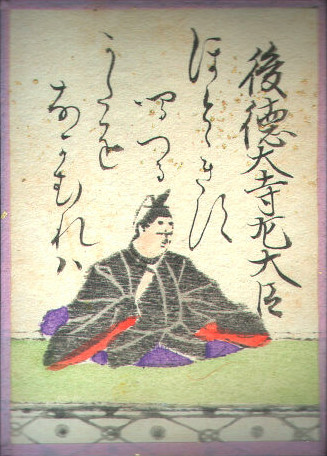 後徳大寺左大臣
ほとゝきす
鳴つる
かたを
なかむれハ